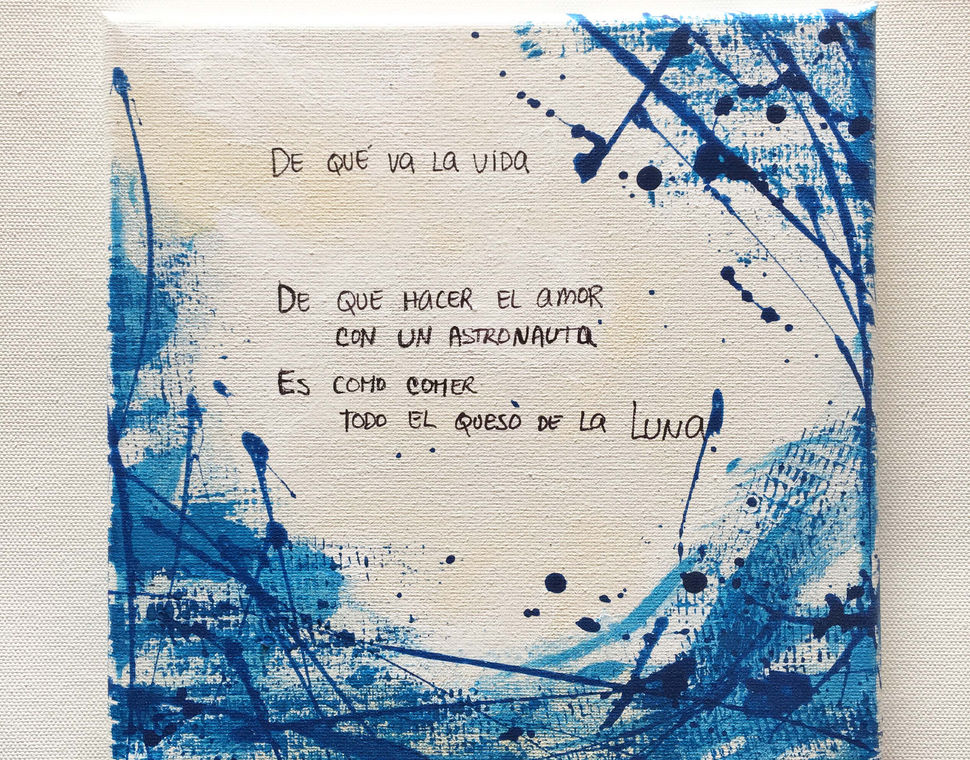 DE QUÉ VA LA VIDA
DE QUE HACER EL AMOR
CON UN ASTRONAUTA
ES COMO COMER
TODO EL QUESO DE LA LUNA